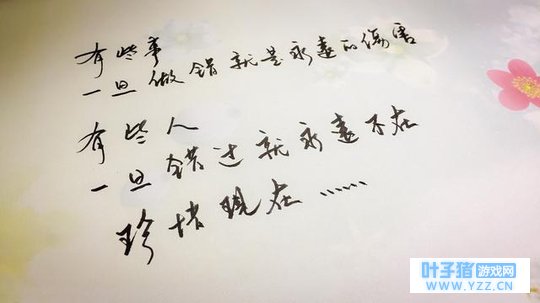 有些事
一旦做错就是永遠的傷害
有些人
一旦错过就永遠不在
珍惜現在……
叶子猪游戏网
WWW.YZZ.CN